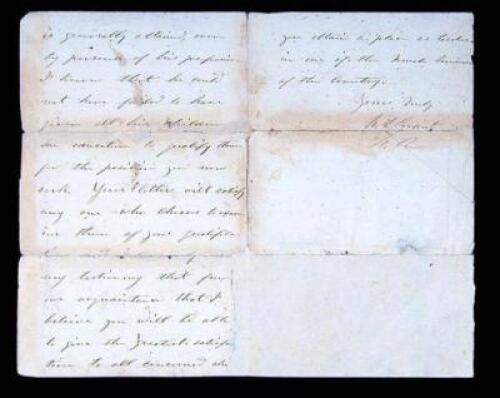 is generally attained, even
by persons of his profession
I know that he could
not have failed to have
given all his children
an education to justify them
for the position you now
seek. Your letters will satisfy
any one who choses to exam
ine them of your qualifica
my testimony that from
our acquaintance that I
believe you will be able
to give the greatest satisfac
tion to all concerned
you obtain a place as teacher
in one of the
of the Country.
Yours Truly
U. S. Grant